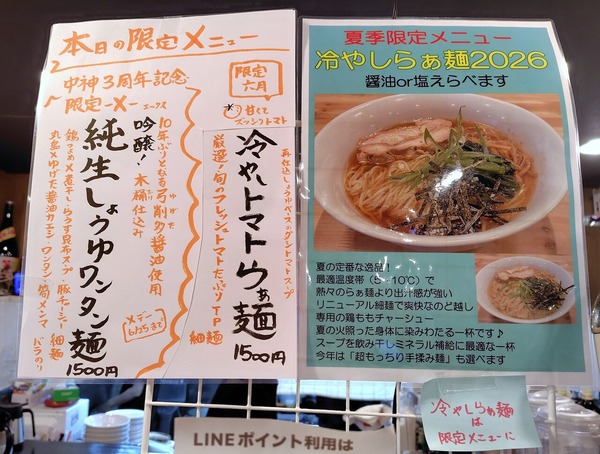 本日の限定メニュー
中神3周年記念
限定-X-エックス
10年ぶりとなる弓削多醤油使用
吟醸！木桶仕込み
純生しょうゆワンタン麺
1500円
鶏つよめ×煮干し・らうす昆布スープ・豚チャーシュー 細麺
丸島×ゆげた醤油カエシ・ワンタン・筍メンマ バラのり
〆デー
6/25まで
限定
六月
甘くてズッシリトマト
再仕込しょうゆベースのグントマトスープ
冷やしトマトらぁ麺
1500円
厳選！旬のフレッシュトマトたっぷりTP
細麺
夏季限定メニュー
冷やしらぁ麺2026
醤油or塩えらべます
夏の定番な逸品！
最適温度帯（5~10℃）で
熱々のらぁ麺より出汁感が強い
リニューアル細麺で爽快なのど越し
専用の鶏ももチャーシュー
夏の火照った身体に染みわたる一杯です♪
スープを飲み干しミネラル補給に最適な一杯
今年は「超もっちり手揉み麺」も選べます
冷やしらぁ麺
は
限定メニューに
LINEポイント利用は